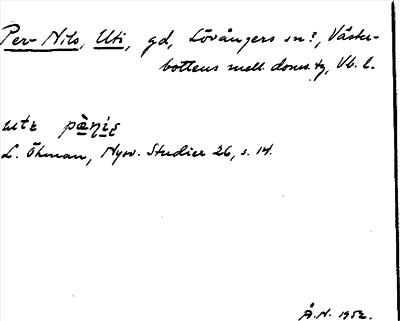 Per-Nils, Uti, gd, Lövångers sn?, Väster-
bottens mell. doms. tg, Vb. l.
L. Öhman, Nysv. Studier 26, s. 14.
Å.N. 1952.